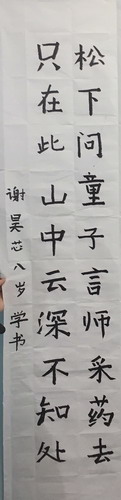 松下问童子言师采药去
只在此山中云深不知处
谢昊芯八岁学书